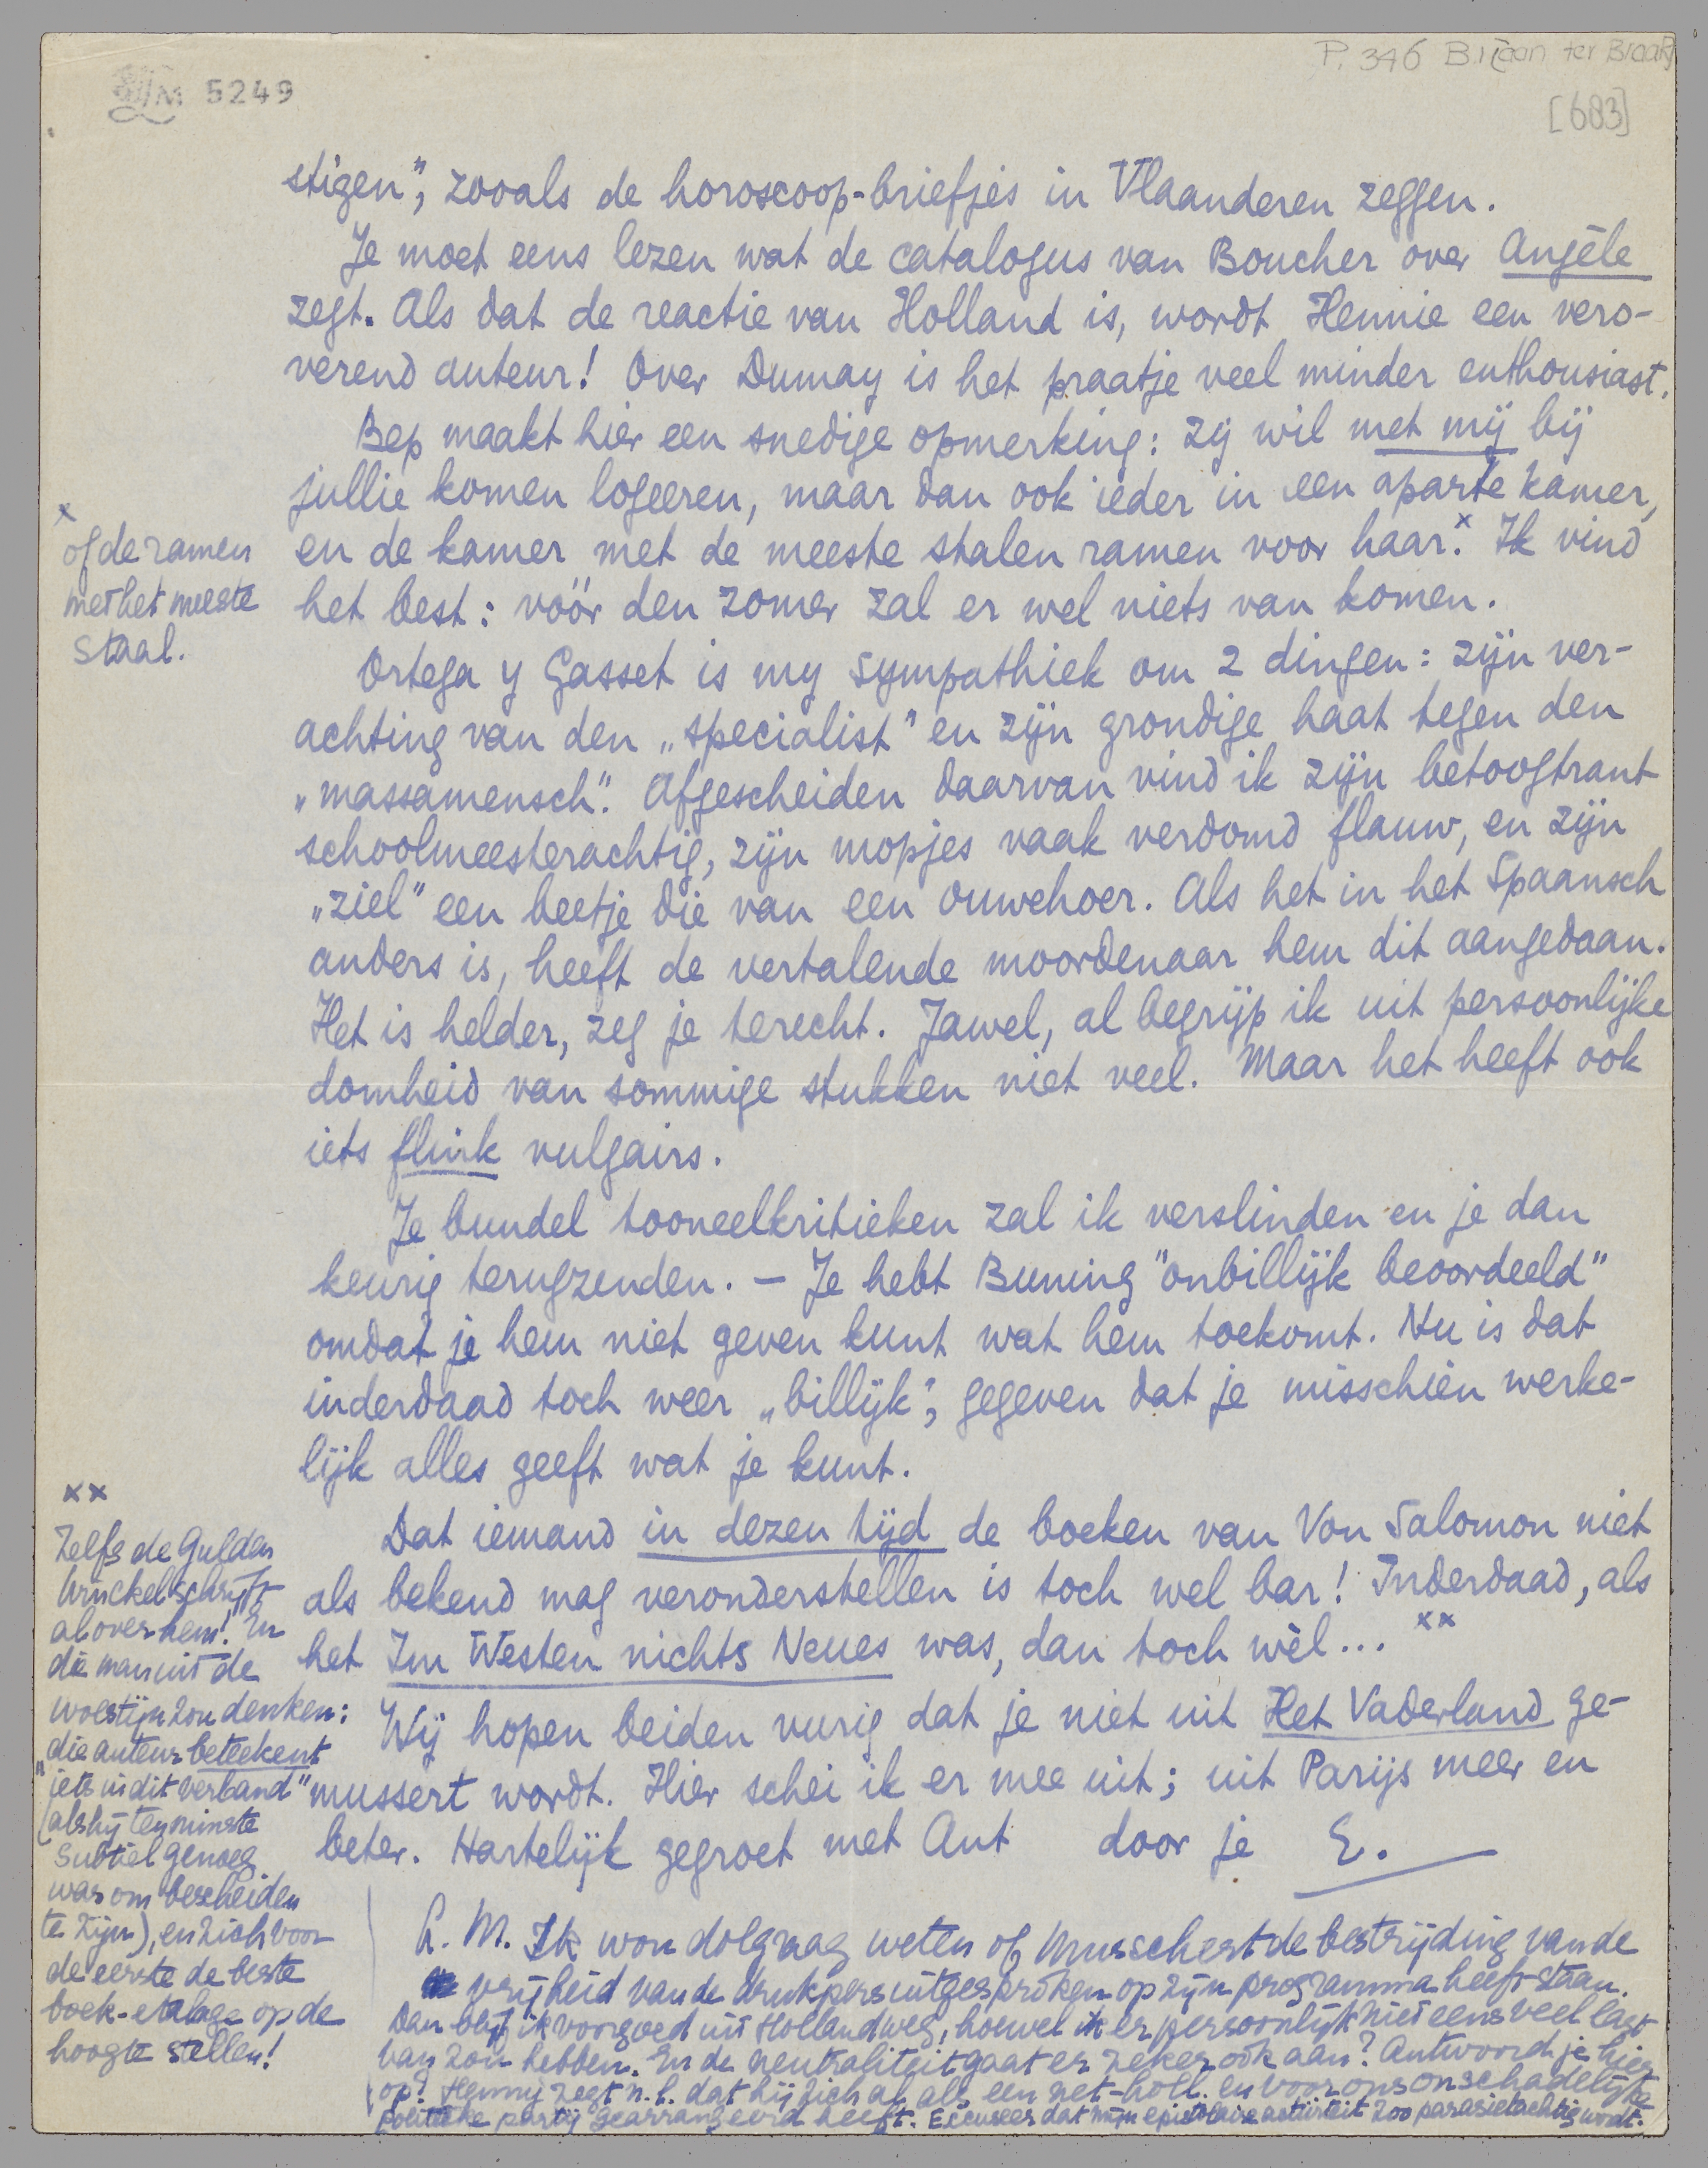 P. 346 Br. aan ter Braak
5249
[683]
stigen", zooals de horoscoop-briefjes in Vlaanderen zeggen.
Je moet eens lezen wat de catalogus van Boucher over Angèle
zegt. Als dat de reactie van Holland is, wordt Hennie een vero-
verend auteur! Over Dumay is het praatje veel minder enthousiast.
Bep maakt hier een snedige opmerking: zij wil met mij bij
jullie komen logeeren, maar dan ook ieder in een aparte kamer,
en de kamer met de meeste stalen ramen voor haar.x Ik vind
het best: vóór den zomer zal er wel niets van komen.
x
of de ramen
met het meeste
staal.
Ortega y Gasset is my sympathiek om 2 dingen: zijn ver-
achting van den „specialist" en zijn grondige haat tegen den
„massamensch". Afgescheiden daarvan vind ik zijn betoogtrant
schoolmeesterachtig, zijn mopjes vaak verdomd flauw, en zijn
„ziel" een beetje die van een ouwehoer. Als het in het Spaansch
anders is, heeft de vertalende moordenaar hem dit aangedaan.
Het is helder, zeg je terecht. Jawel, al begrijp ik uit persoonlijke
domheid van sommige stukken niet veel. Maar het heeft ook
iets flink vulgairs.
Je bundel tooneelkritieken zal ik verslinden en je dan
keurig terugzenden. – Je hebt Buning "onbillijk beoordeeld"
omdat je hem niet geven kunt wat hem toekomt. Nu is dat
inderdaad toch weer „billijk", gegeven dat je misschien werke-
lijk alles geeft wat je kunt.
Dat iemand in dezen tijd de boeken van Von Salomon niet
als bekend mag veronderstellen is toch wel bar! Inderdaad, als
het Im Westen nichts Neues was, dan toch wèl... xx
xx
Zelfs de Gulden
Winckel schrijft
al over hem! En
die man uit de
woestijn zou denken:
„die auteur beteekent
iets in dit verband"
(als hij tenminste
subtiel genoeg
was om bescheiden
te zijn), en zich voor
de eerste de beste
boek-etalage op de
hoogte stellen!
Wij hopen beiden vurig dat je niet uit Het Vaderland ge-
mussert wordt. Hier schei ik er mee uit; uit Parijs meer en
beter. Hartelijk gegroet met Ant door je E.
A. M. Ik wou dolgraag weten of Mussert de bestrijding van de
vrijheid van de drukpers uitgesproken op zijn programma heeft staan.
Dan blijf ik voorgoed uit Holland weg, hoewel ik er persoonlijk niet eens veel last
van zou hebben. En de neutraliteit gaat er zeker ook aan? Antwoord je hier
op? Henny zegt n.l. dat hij zich al als een net-holl. en voor ons onschadelijke
politieke partij gearrangeerd heeft. Excuseer dat mijn epistolaire activiteit zoo parasietachtig wordt.